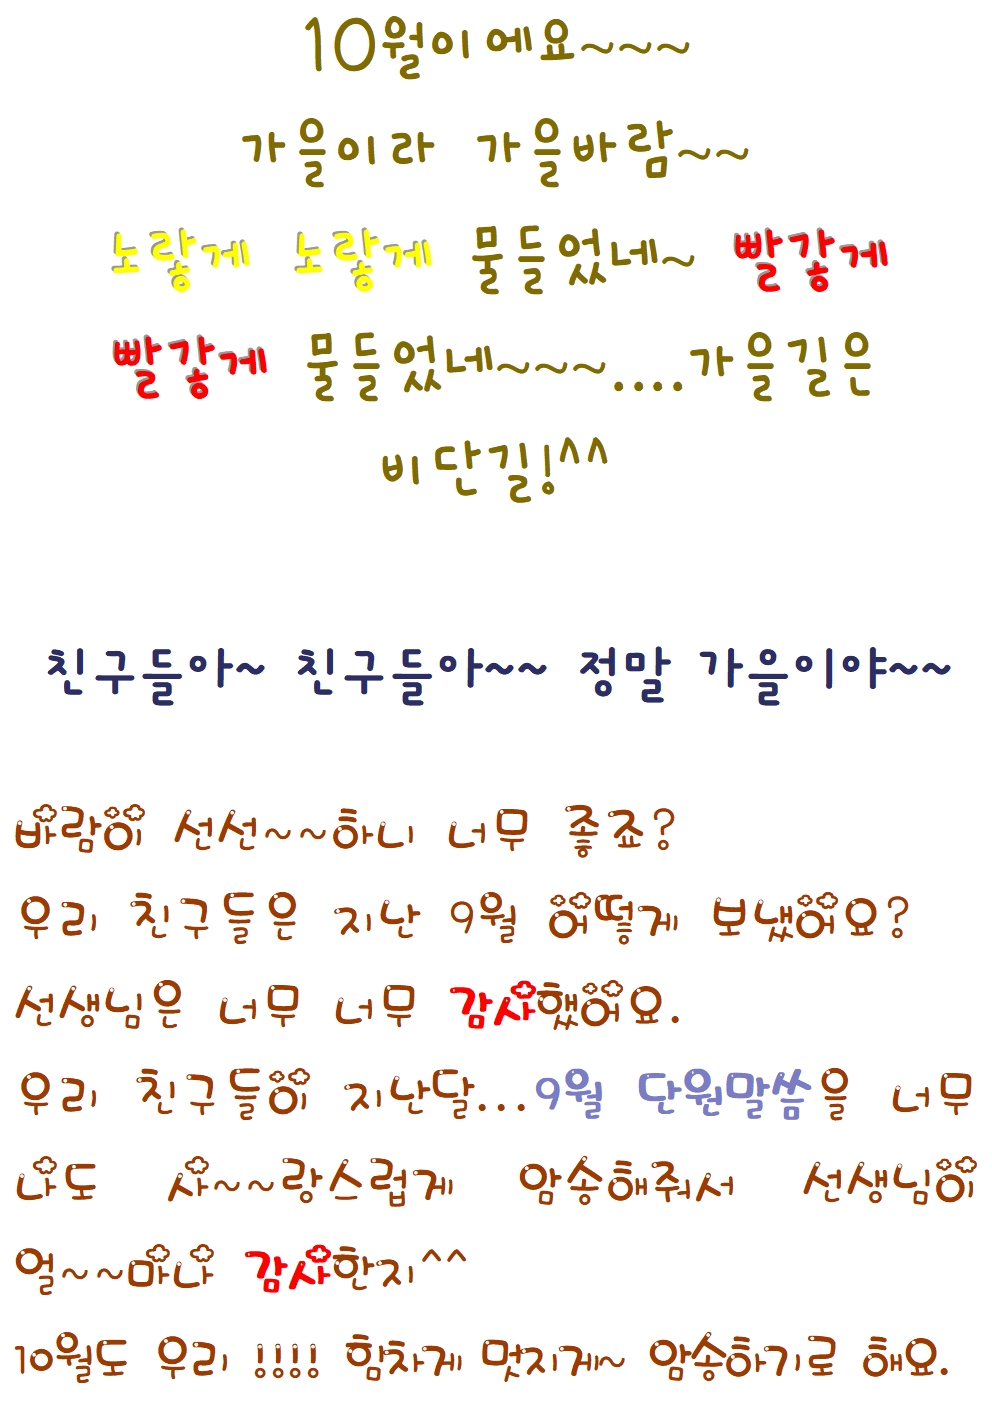 10월이에요~~~
가을이라 가을바람~~
노랗게 노랗게 물들었네~ 빨갛게
빨갛게 물들었네~~~....가을길은
비단길!^^
친구들아~ 친구들아~~ 정말 가을이야~~
바람이 선선~~하니 너무 좋죠?
우리 친구들은 지난 9월 어떻게 보냈어요?
선생님은 너무 너무 감사했어요.
우리 친구들이 지난달...9월 단원말씀을 너무
나도 사~~랑스럽게 암송해줘서 선생님이
얼~~마나 감사한지^^
10월도 우리 !!!! 힘차게 멋지게~ 암송하기로 해요.